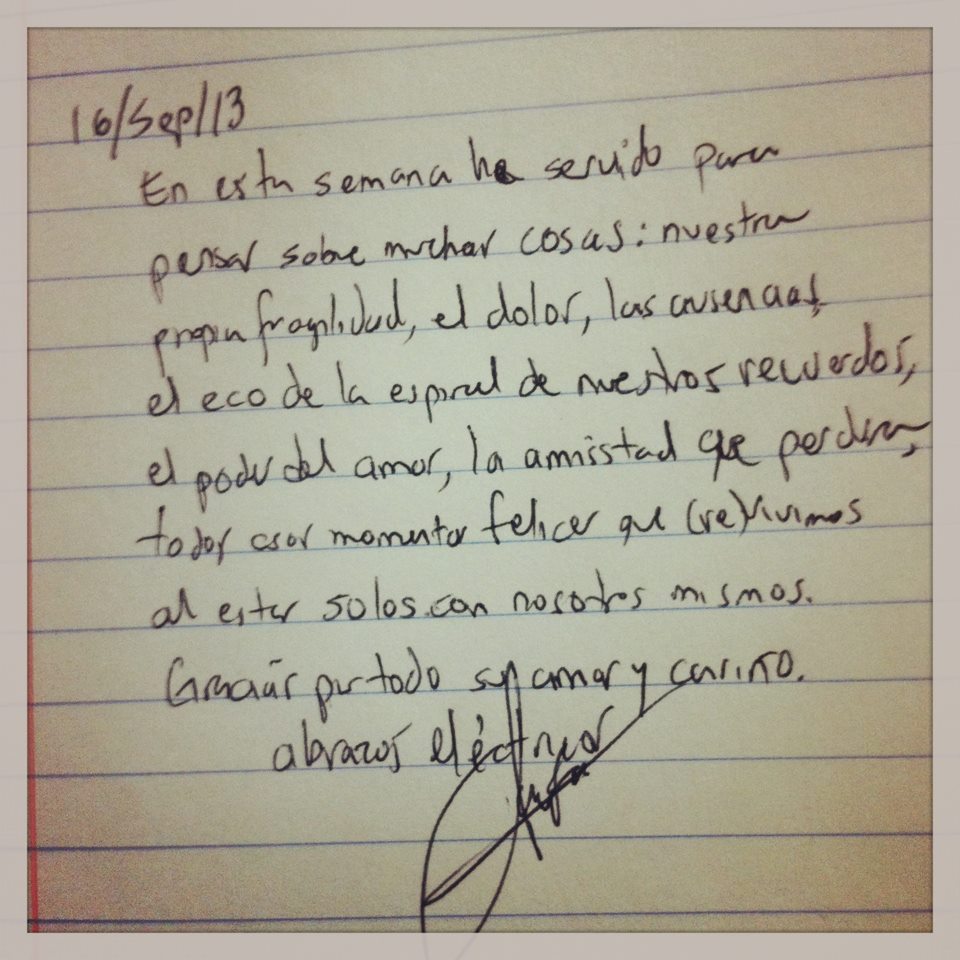 16/Sep/13
En esta semana ha servido para
pensar sobre muchas cosas: nuestra
propia fragilidad, el dolor, las ausencias,
el eco de la espiral de nuestros recuerdos,
el poder del amor, la amistad que perdura,
todos esos momentos felices que (re)vivimos
al estar solos con nosotros mismos.
Gracias por todo su amor y cariño.
abrazos eléctricos